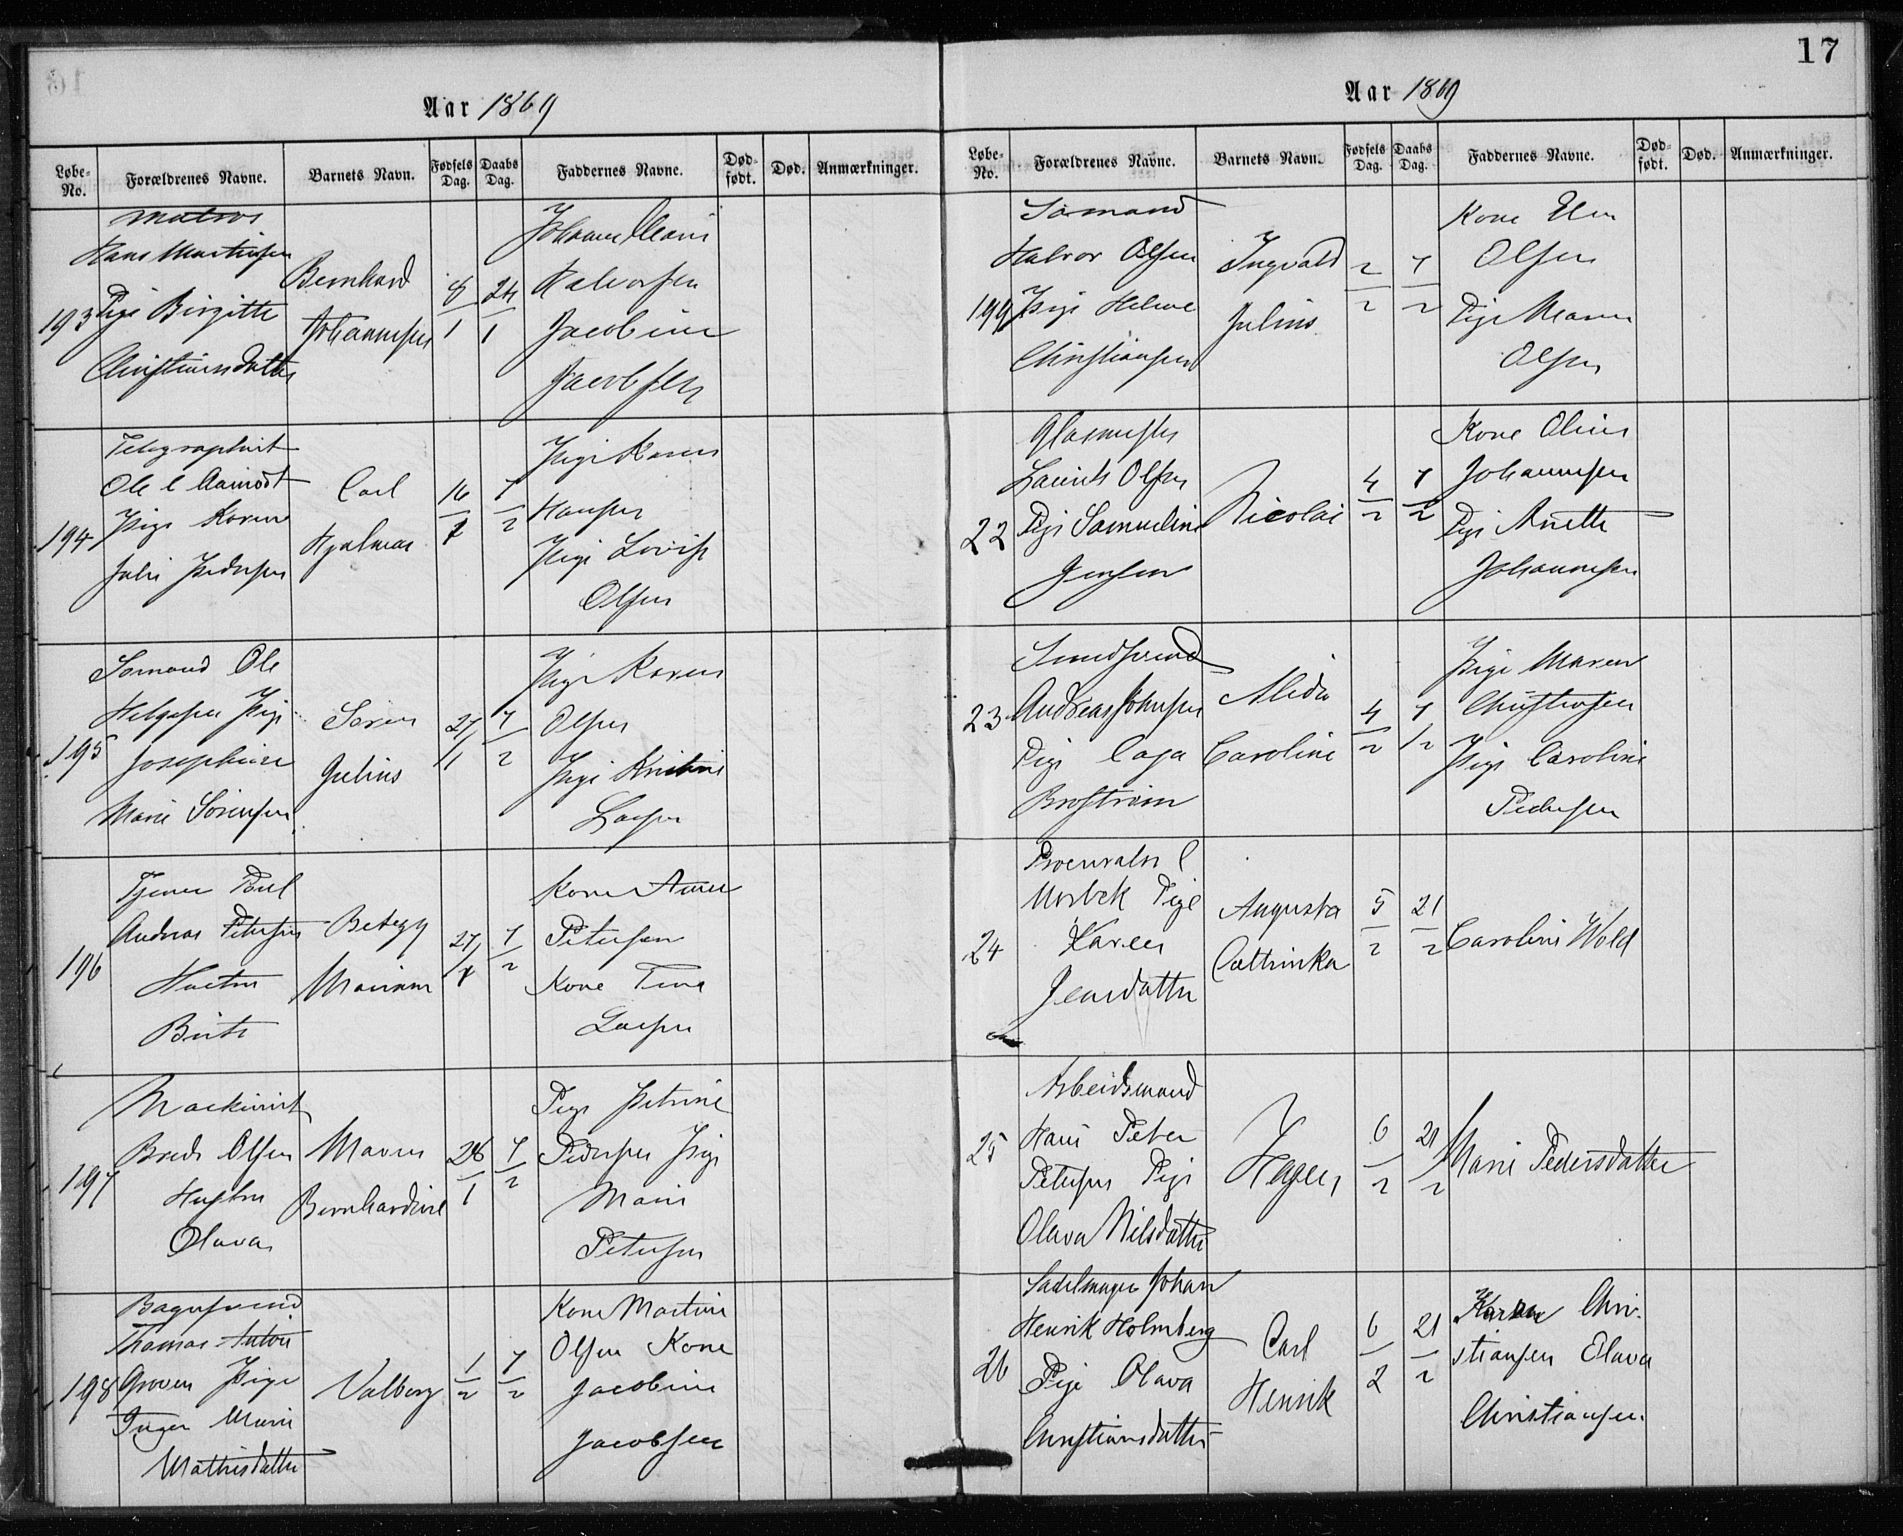 17
Aar 1869
Løbe-No. Forældrenes Navne. Barnets Navn. Fødsels Dag. Daabs Dag. Faddernes Navne. Død-født. Død. Anmærkninger.
193
Matros
Hans Martinsen
Pige Birgitte
Christiansdatter
Bernhard
Johannesen
8/1
24/1
Halvorsen
Jacobine
Jacobsen
194
Telegraphist
Ole C Aamodt
Pige Karen
Julie Pedersen
Carl
Hjalmar
16/1
7/2
Pige Karen
Hansen
Pige Lovise
Olsen
195
Sømand Ole
Helgesen Pige
Josephine
Marie Sørensen
Søren
Julius
27/1
7/2
Pige Karen
Olsen
Pige Kristine
Larsen
196
Tjener Poul
Andreas Petersen
Hustru
Birte
Betzy
Mariane
27/1
7/2
Kone Anne
Petersen
Kone Tina
Larsen
197
Maskinist
Brede Olsen
Hustru
Olava
Maren
Bernhardine
28/1
7/2
Pige Petrine
Pedersen Pige
Marie
Petersen
198
Bagersvend
Thomas Anton
Groven Pige
Inger Marie
Mathisdatter
Valborg
1/2
7/2
Kone Martine
Olsen Kone
Jacobine
Jacobsen
Aar 1869
Løbe-No. Forældrenes Navne. Barnets Navn. Fødsels Dag. Daabs Dag. Faddernes Navne. Død-født. Død. Anmærkninger.
199
Sømand
Halvor Olsen
Pige Helene
Christiansen
Ingvald
Julius
2/2
7/2
Kone Elen
Olsen
Pige Maren
Olsen
22
Glasmester
Laurits Olsen
Pige Samueline
Jensen
Nicolai
4/2
7/2
Kone Oline
Johannesen
Pige Anette
Johannesen
23
Smedsvend
Andreas Johnsen
Pige Caja
Broström
Alida
Caroline
4/2
7/2
Pige Maren
Christensen
Pige Caroline
Pedersen
24
Procurator C
Morbek Pige
Karen
Jensdatter
Augusta
Cathrinka
5/2
21/2
Caroline Wold
25
Arbeidsmand
Hans Peter
Petersen Pige
Olava Nilsdatter
Hagen
6/2
21/2
Marie Pedersdatter
26
Sadelmager Johan
Henrik Holmberg
Pige Olava
Christiansdatter
Carl
Henrik
6/2
21/2
Karen Chri-
stiansen Elava
Christiansen